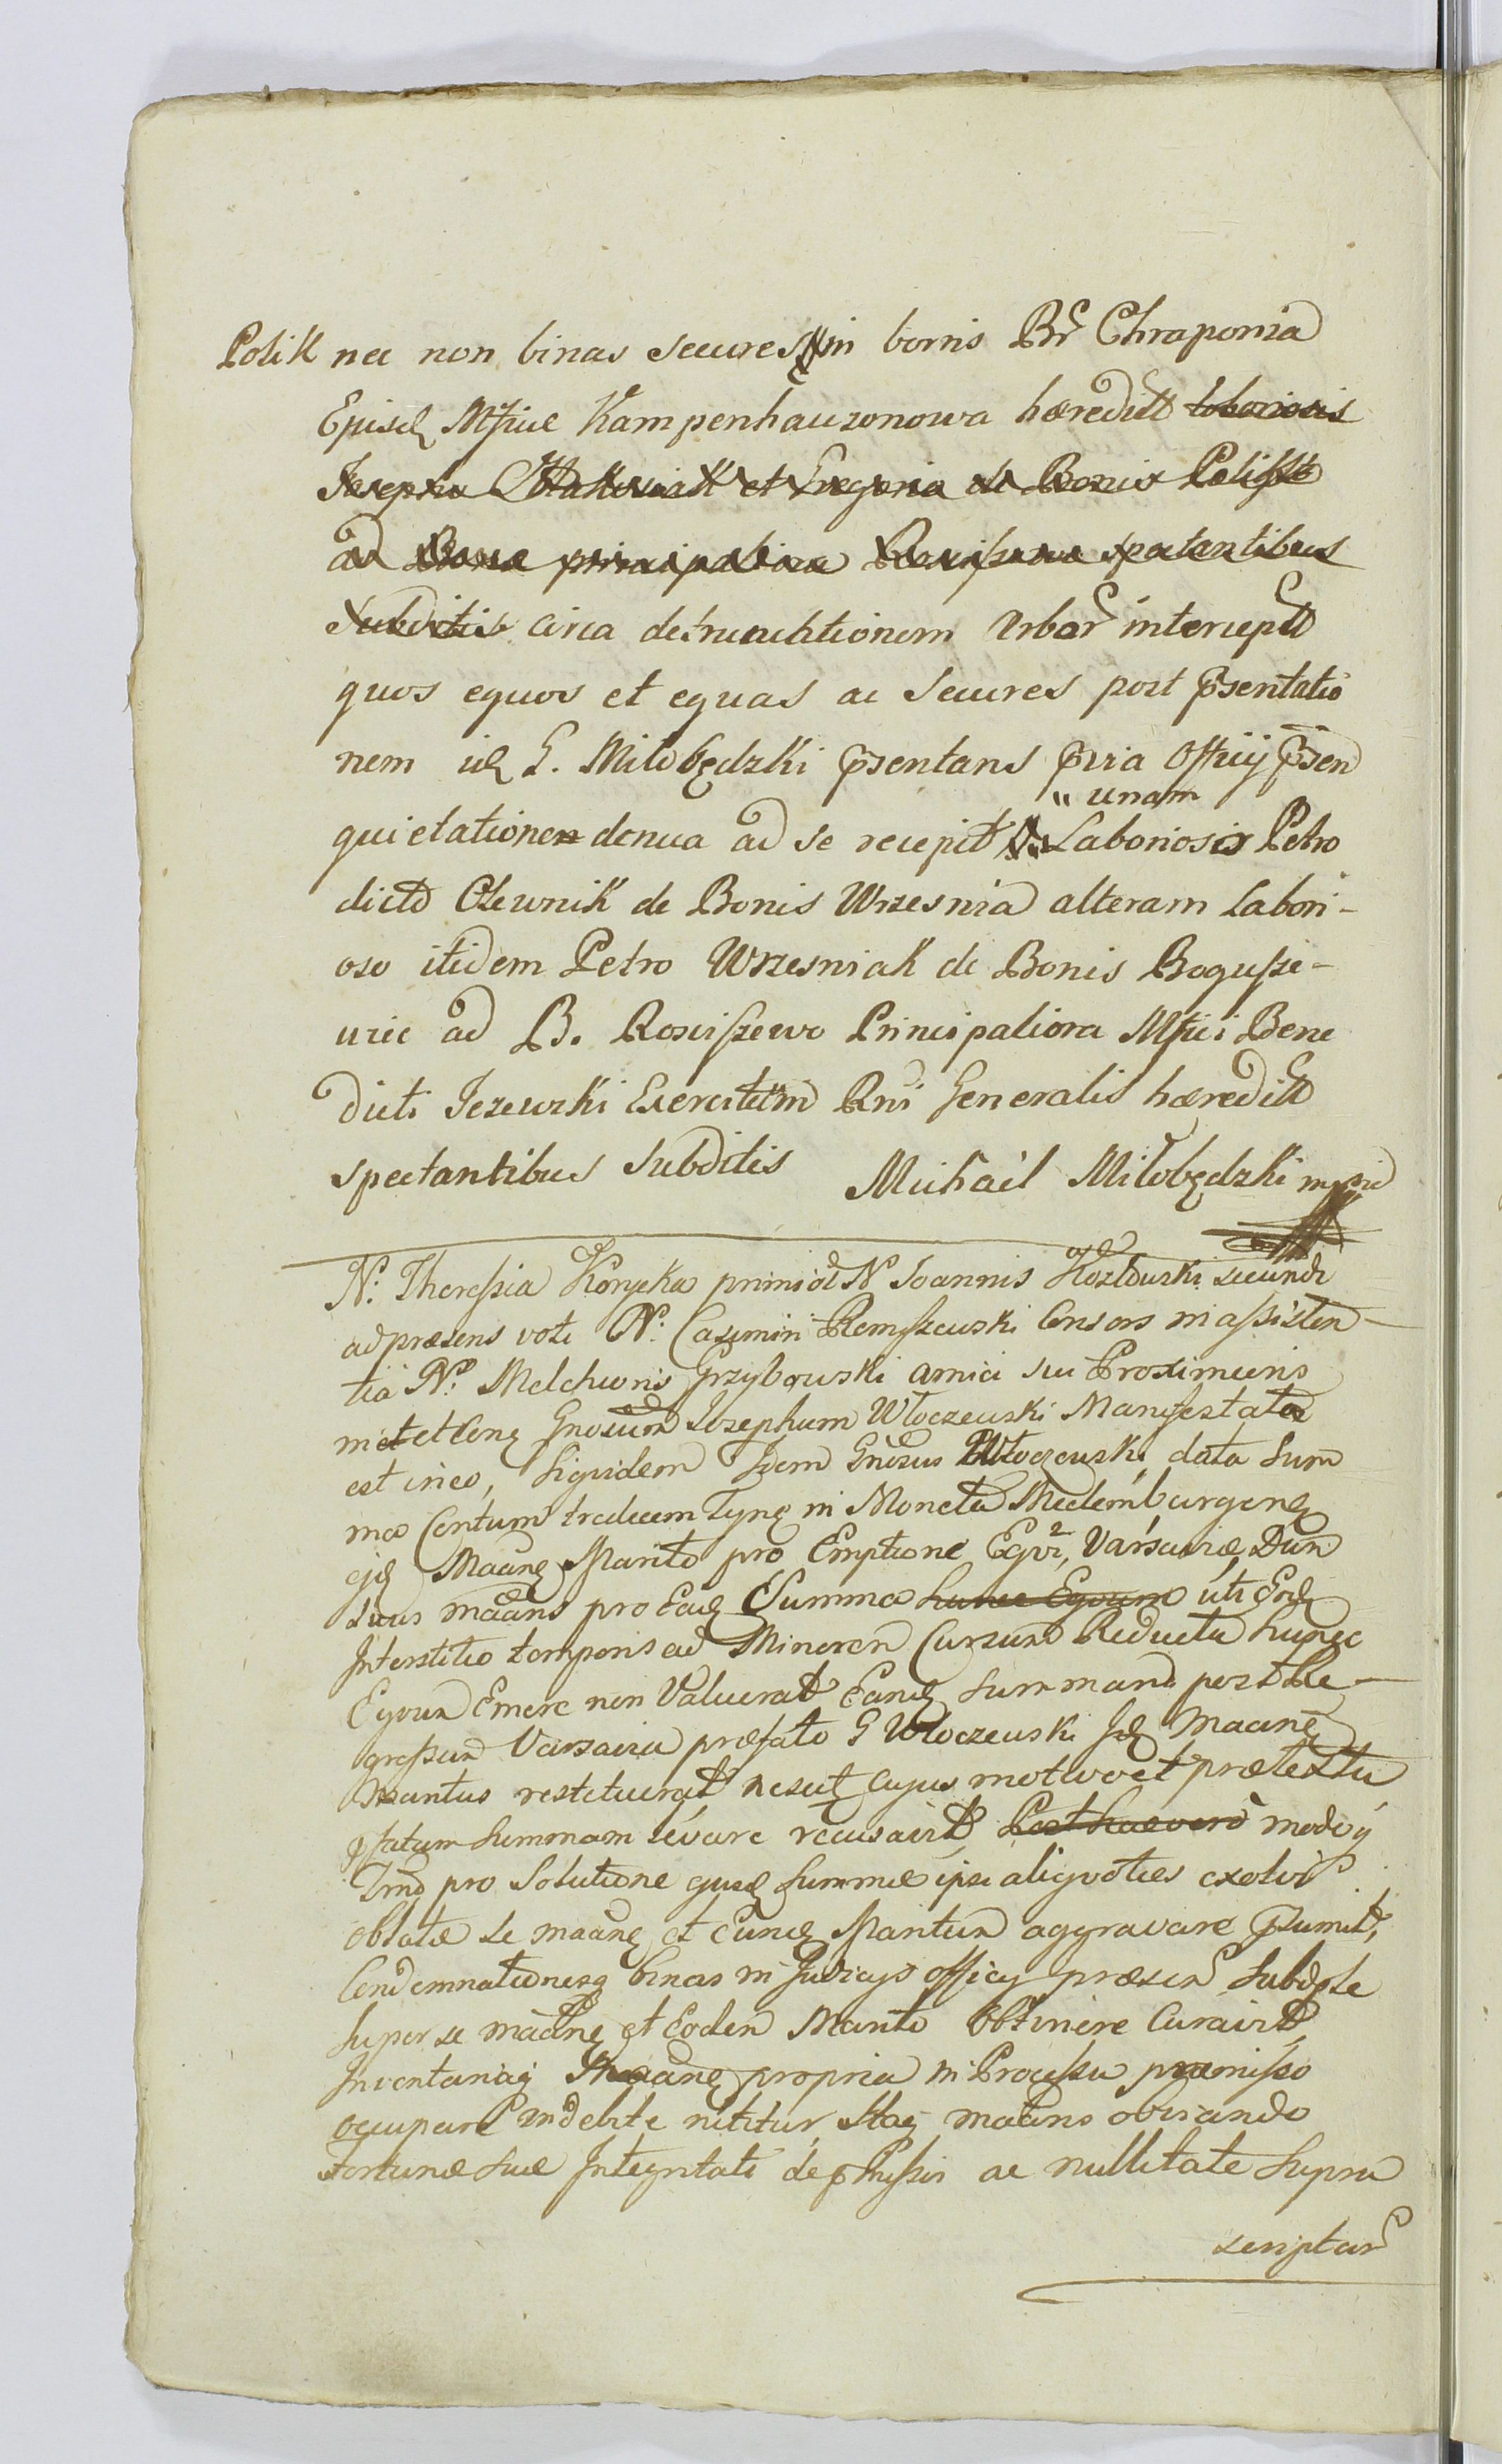 Polik nec non binas secures in bonis Br Chraponia
Episcq Mfice Kampenhauzonowa hæredit laboriosis
Josepho et Gregorio de Bonis
ad Bona principaliora spectantibus
Subditis circa detruncationem Arbor intercept
quos equos et equas ac secures post psentatio
nem idq G. Miłobędzki psentans pvia Officij psen
"unam
quietationem denua ad se recepit Laboriosis Petro
dicto Olewnik de Bonis Wrzesnia alteram Labori-
oso itidem Petro Wrzesniak de Bonis Bogusze-
wic ad B. Rosciszewo Principaliora Mfici Bene
dicti Jezewski Exercituum Rni Generalis hæredit
spectantibus Subditis Michaël Miłobędzki mpria
N. Theressia Konycka primi ol N Joannis Kozłowski secundi
ad præsens voti N. Casimiri Remiszewski Consors in assisten-
tia N. Melchioris Grzybowski amici sui Proximioris
met et conq Gnosum Josephum Włoczewski Manifestata
est in eo, Siquidem Idem Gnosus Włoczewski data Sum
ma Centum tredecim Tynf in Moneta Medemburgenq
ejq Maanq Marito pro Emptione Equi, Varsaviæ, Dum
suus maans pro Eadq Summa hunc Equum uti Eodq
Interstitio temporis ad Minorem Cursum Reducta hunc
Equum Emere non Valuerat Eamq summam post Re-
gressum Varsavia præfato G Włoczewski Idq Maanq
Maritus restituerat nescitq cujus motivo et prætextu
pfatam summam levare recusavit, Post hac vero modo
Imo pro Solutione ejusq summæ ipsi aliquoties exolvi
oblatæ se maanq et Eundq Maritum aggravare psumit,
Condemnationesq binas in Judicijs officij præsen subdole
super se maanq et Eodem Marito Obtinere Curavit,
Inventariaq Maanq propria in Processu præmisso
occupare indebite nititur, Itaq maans obviando
fortunæ suæ Integritati de pmissis ac nullitate supra
scriptar